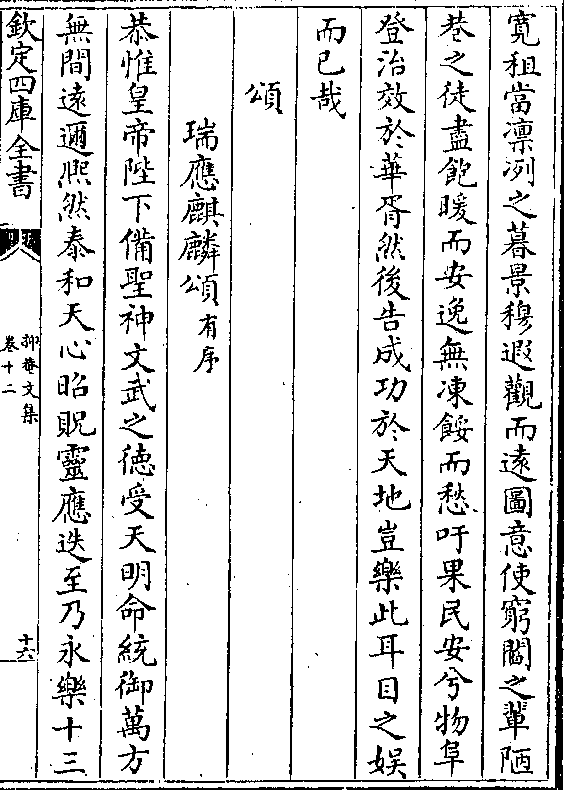 寛租當凛冽之暮景穆遐觀而遠圖意使窮閻之輩陋
巷之徒盡飽暖而安逸無凍餒而愁吁果民安兮物阜
登治效於華胥然後告成功於天地豈樂此耳目之娱
而已哉
頌
瑞應麒麟頌有序
恭惟皇帝陛下備聖神文武之徳受天明命統御萬方
無間遠邇熙然泰和天心昭貺靈應迭至乃永樂十三
欽定四庫全書
抑菴文集
卷十二
十六